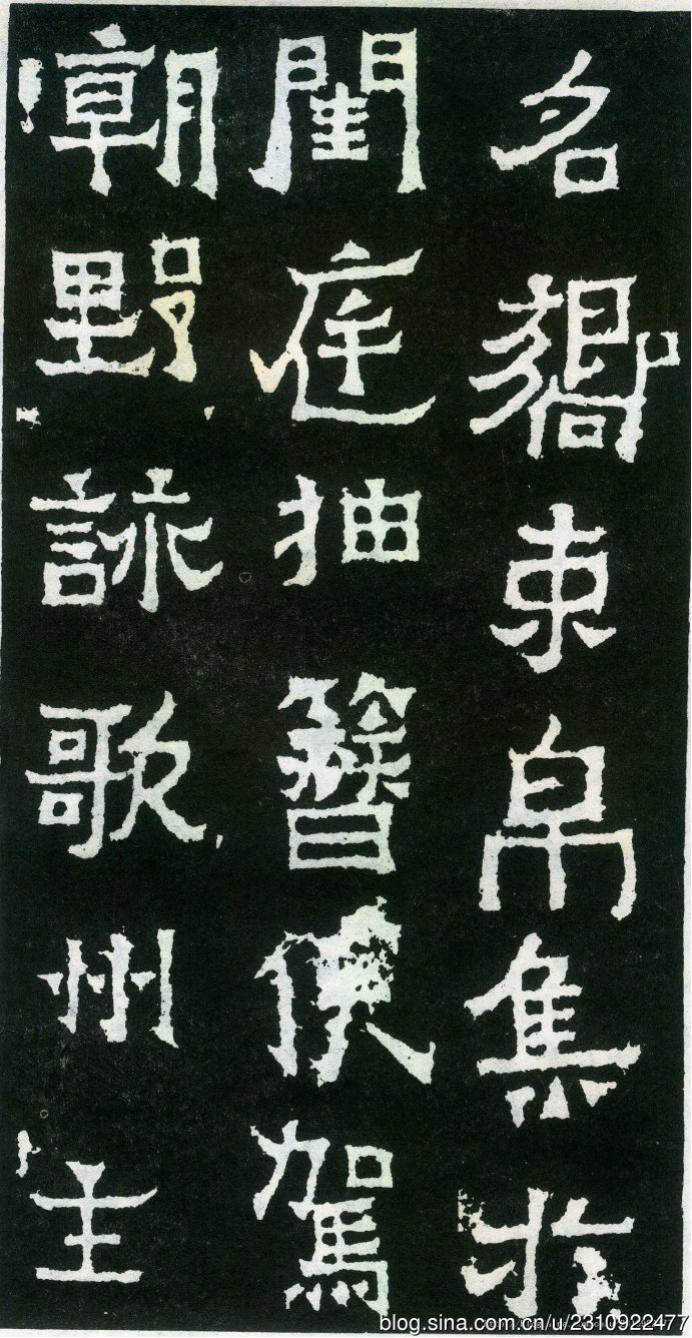 名嚮束帛集於
閨庭抽簪俟駕
朝野詠歌州主
blog.sina.com.cn/u/2310922477